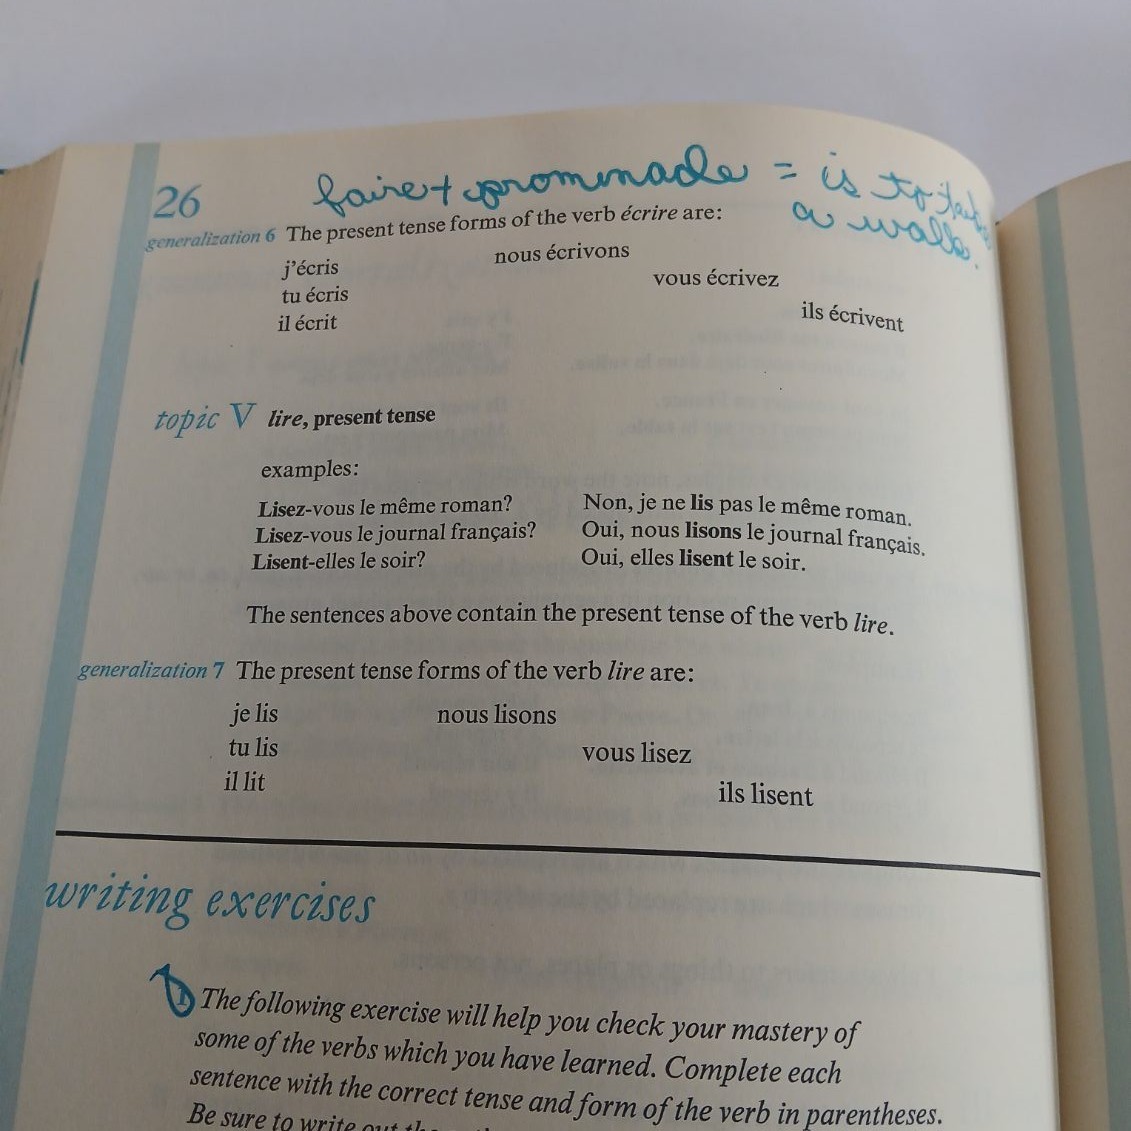 faire + prommade = is to take
a walk.
26
generalization 6 The present tense forms of the verb écrire are:
j'écris nous écrivons
tu écris vous écrivez
il écrit ils écrivent
topic V lire, present tense
examples:
Lisez-vous le même roman? Non, je ne lis pas le même roman.
Lisez-vous le journal français? Oui, nous lisons le journal français.
Lisent-elles le soir? Oui, elles lisent le soir.
The sentences above contain the present tense of the verb lire.
generalization 7 The present tense forms of the verb lire are:
je lis nous lisons
tu lis vous lisez
il lit ils lisent
writing exercises
1 The following exercise will help you check your mastery of
some of the verbs which you have learned. Complete each
sentence with the correct tense and form of the verb in parentheses.
Be sure to write out the